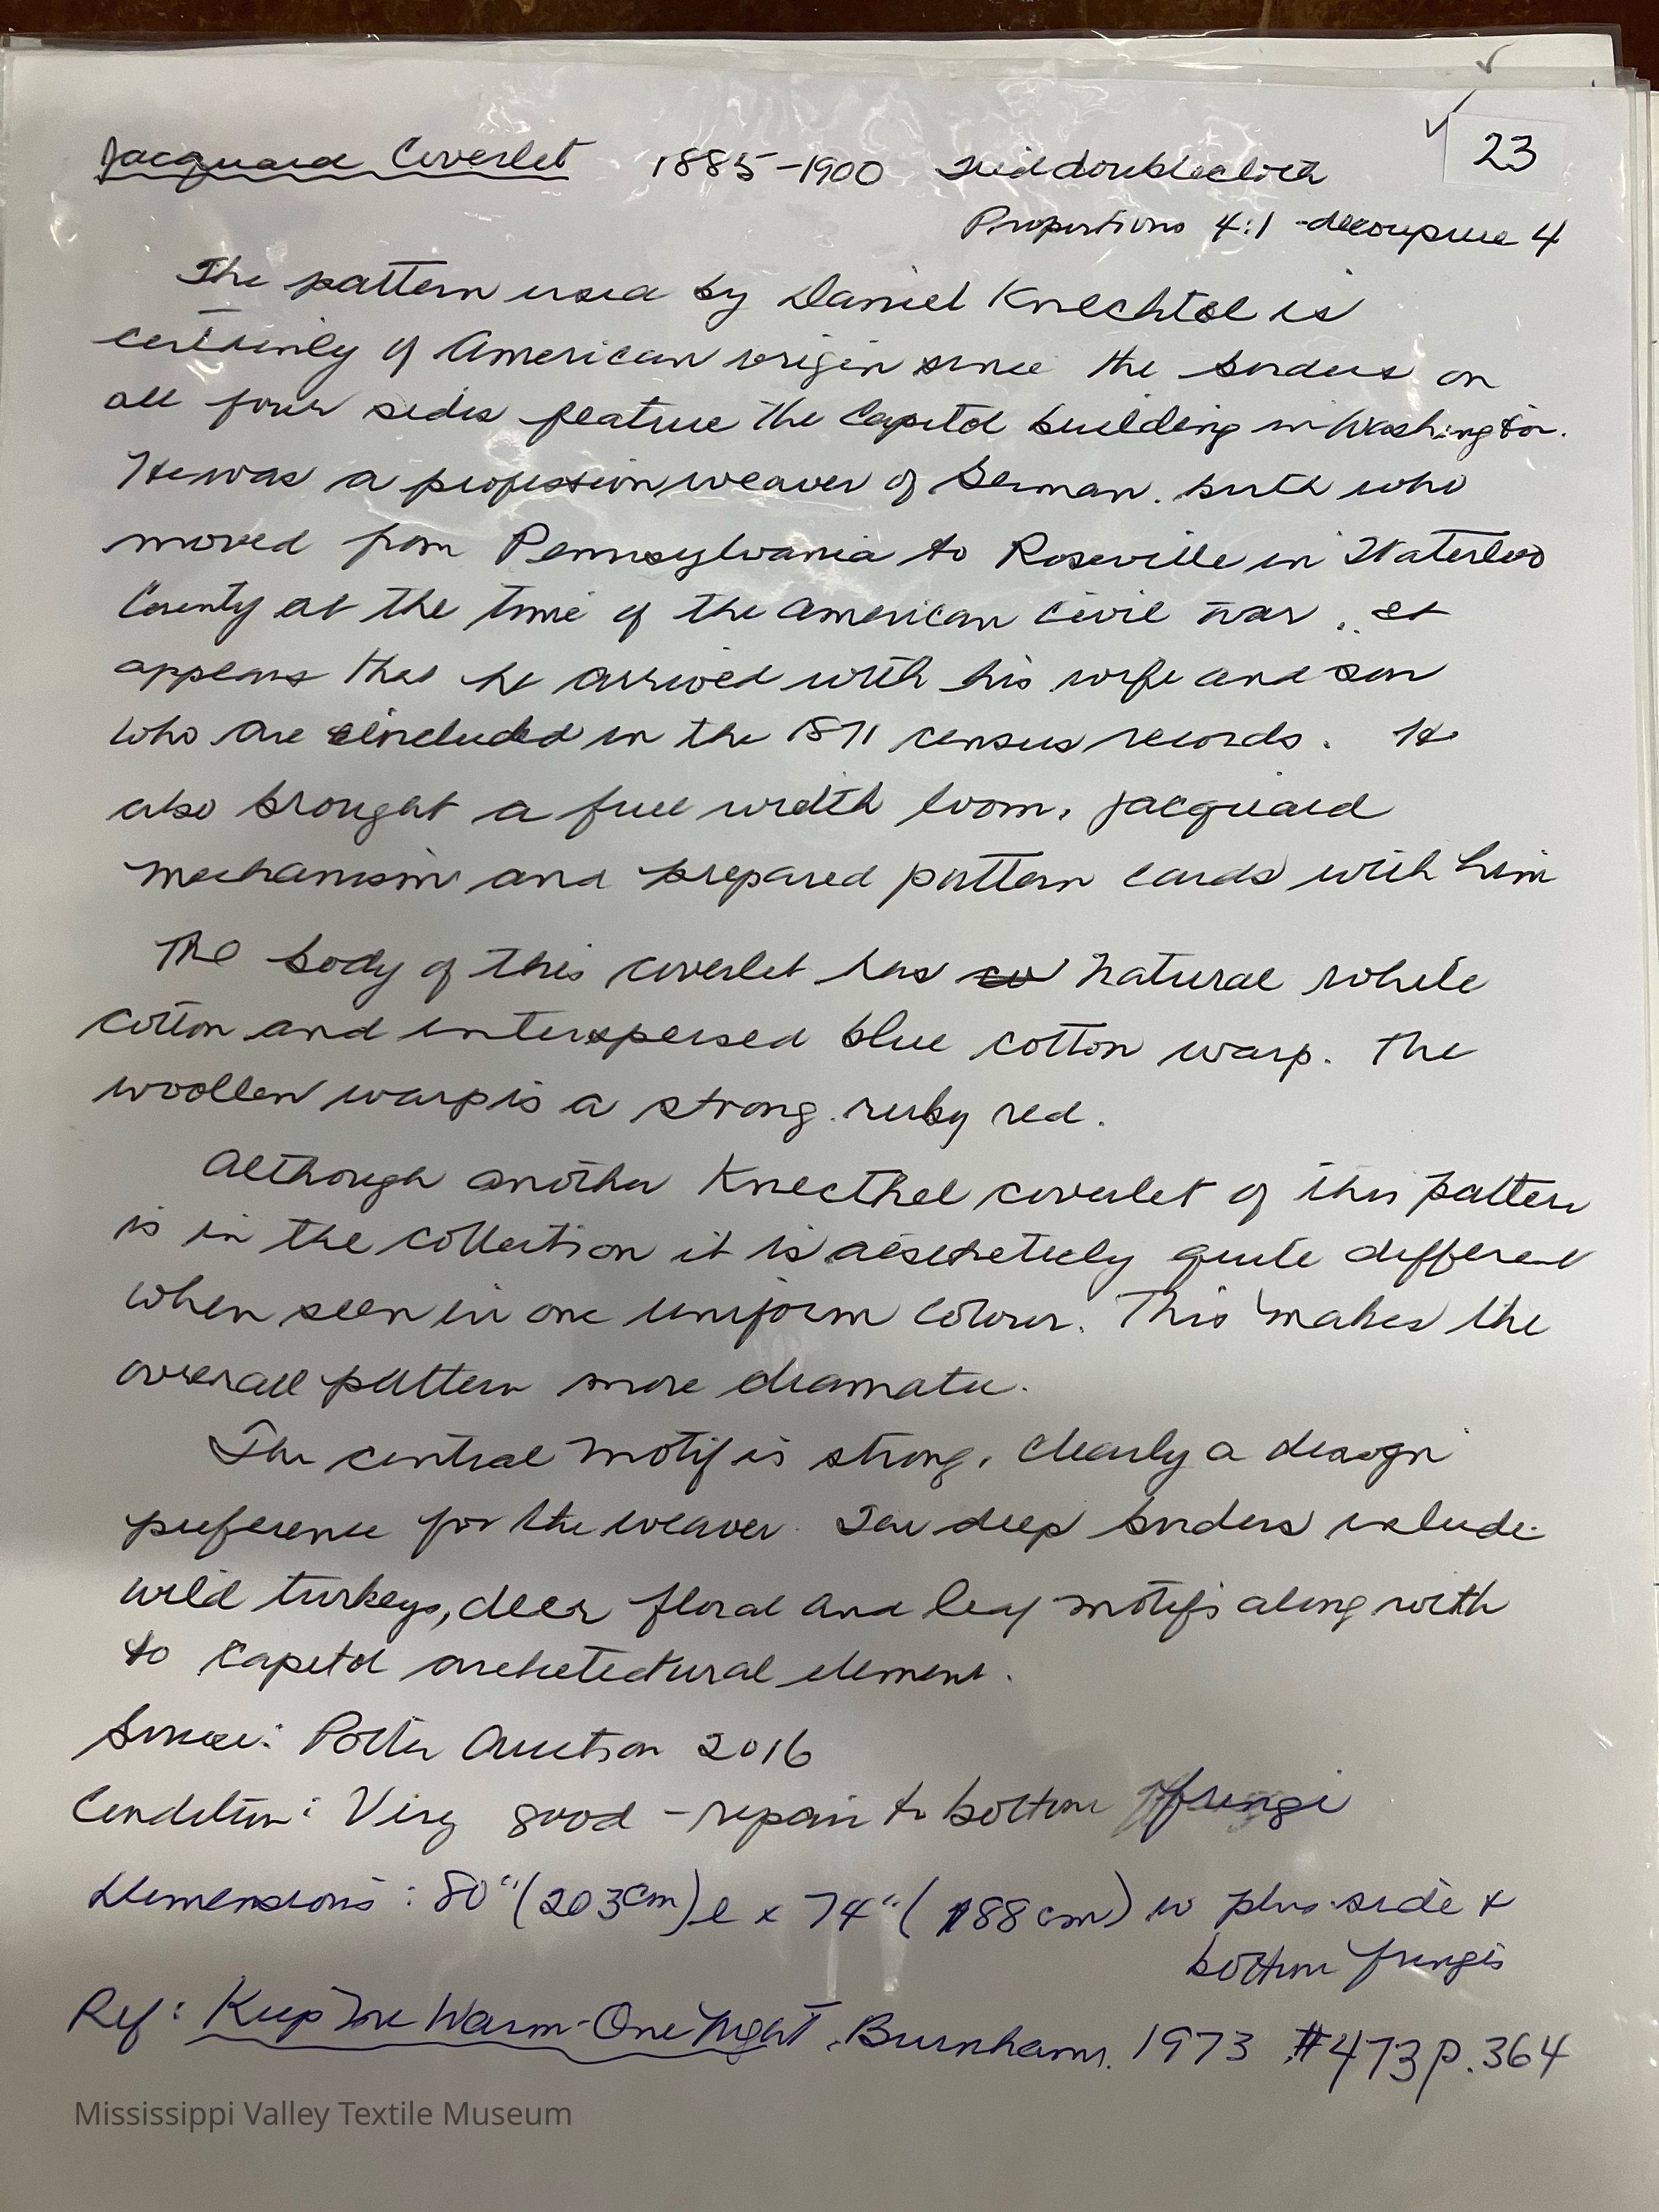 23
Jacquard Coverlet 1885-1900 Tied doublecloth
Proportions 4:1 - decoupure 4
The pattern used by Daniel Knechtel is
certainly of American origin since the borders on
all four sides feature the Capitol building in Washington.
He was a profession weaver of German birth who
moved from Pennsylvania to Roseville in Waterloo
County at the time of the American Civil War. It
appears that he arrived with his wife and son
who are included in the 1871 census records. He
also brought a full width loom, jacquard
mechanism and prepared pattern cards with him
The body of this coverlet has natural white
cotton and interspersed blue cotton warp. The
woollen warp is a strong ruby red.
Although another Knecthel coverlet of this pattern
is in the collection it is quite different
when seen in one uniform colour. This makes the
overall pattern more dramatic.
The central motif is strong, clearly a design
preference for the weaver. The deep borders include
wild turkeys, deer floral and leaf motifs along with
to Capitol architectural element.
Source: Potter Auction 2016
Condition: Very good - repair to bottom fringe
Dimensions: 80" (203cm) l x 74" (188 cm) w plus side &
bottom fringes
Ref: Keep Me Warm One Night, Burnham. 1973 #473 p. 364
Mississippi Valley Textile Museum